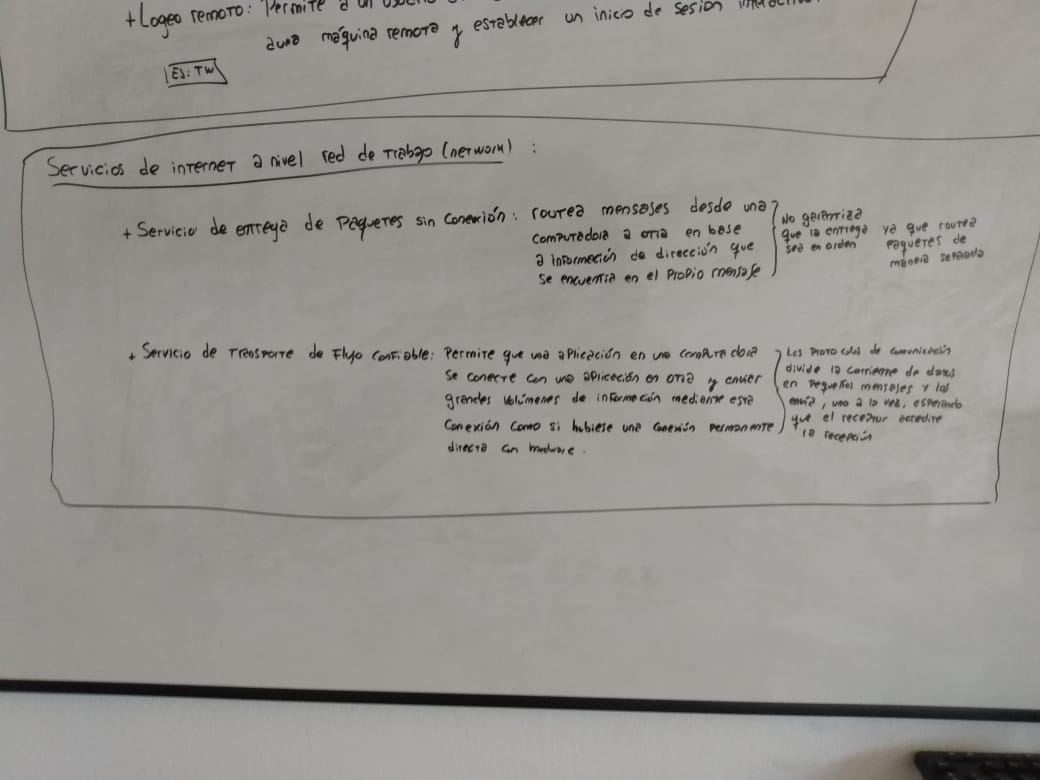 + Logeo remoto: Permite a un
a una máquina remota y establecer un inicio de sesión
EJ: TW
Servicios de internet a nivel red de trabajo (network) :
+ Servicio de entrega de paquetes sin conexión: routea mensajes desde una
computadora a otra en base
a información de dirección que
se encuentra en el propio mensaje
No garantiza
que la entrega
sea en orden
ya que routea
paquetes de
manera separada
+ Servicio de transporte de flujo confiable: Permite que una aplicación en una computadora
se conecte con una aplicación en otra y enviar
grandes volúmenes de información mediante esta
conexión como si hubiese una conexión permanente
directa con hardware.
Los protocolos de comunicación
divide la corriente de datos
en pequeños mensajes y los
envía, uno a la vez, esperando
que el receptor acredite
la recepción